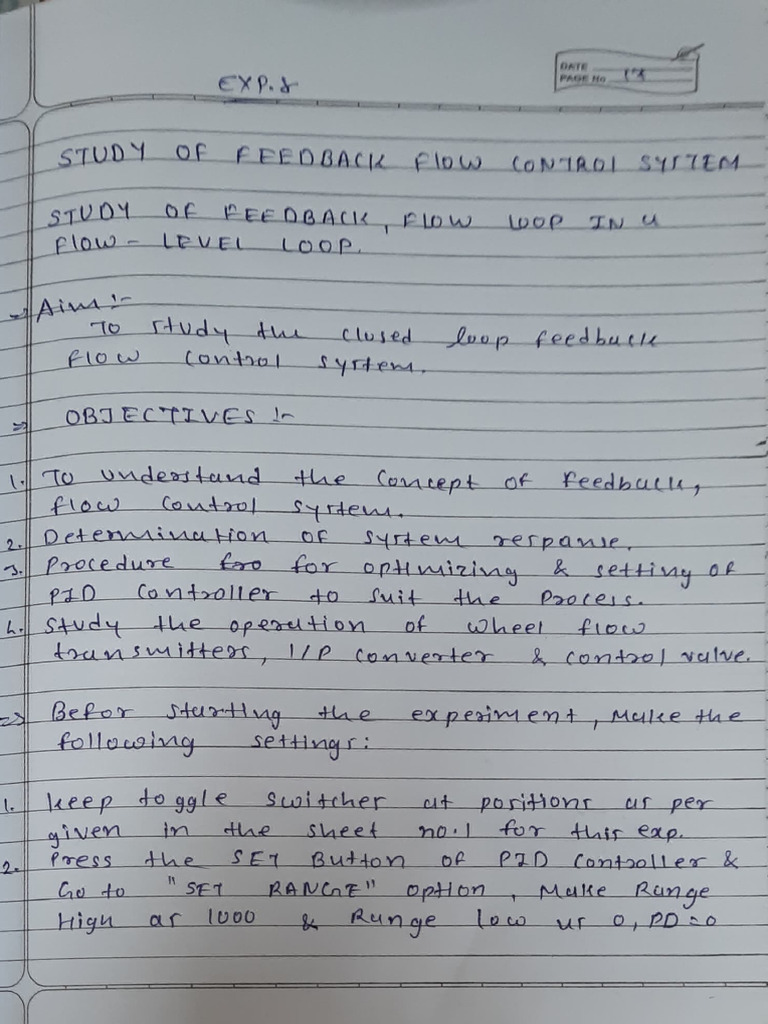 EXP. 8
DATE
PAGE NO
STUDY OF FEEDBACK FLOW CONTROL SYSTEM
STUDY OF FEEDBACK, FLOW LOOP IN a
FLOW - LEVEL LOOP.
⇒ Aim :-
To study the closed loop feedback
flow control system.
⇒ OBJECTIVES :-
1. To understand the concept of feedback,
flow control system.
2. Determination of system response.
3. Procedure fro for optimizing & setting of
PID controller to suit the process.
4. Study the operation of wheel flow
transmitters, I/P converter & control valve.
⇒ Befor starting the experiment, Make the
following settings:
1. keep toggle switches at positions as per
given in the sheet no.1 for this exp.
2. Press the SET Button of PID controller &
Go to "SET RANGE" option, Make Range
High as 1000 & Range low as 0, PD=0